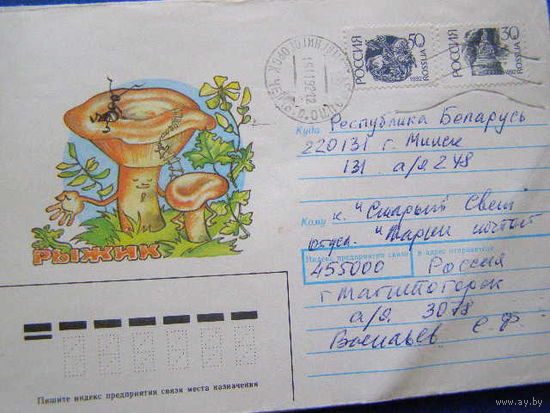 РОССИЯ 50 1992 ROSSIJA
РОССИЯ 30 1992 ROSSIJA
Куда Республика Беларусь
220131 г. Минск
131 а/я 248
Кому к. "Старый Свет"
"Марки почтой
Индекс предприятия связи и адрес отправителя
455000 Россия
г Магнитогорск
а/я 3078
Васильев С. Ф.
РЫЖИК
Пишите индекс предприятия связи места назначения
www.ay.by